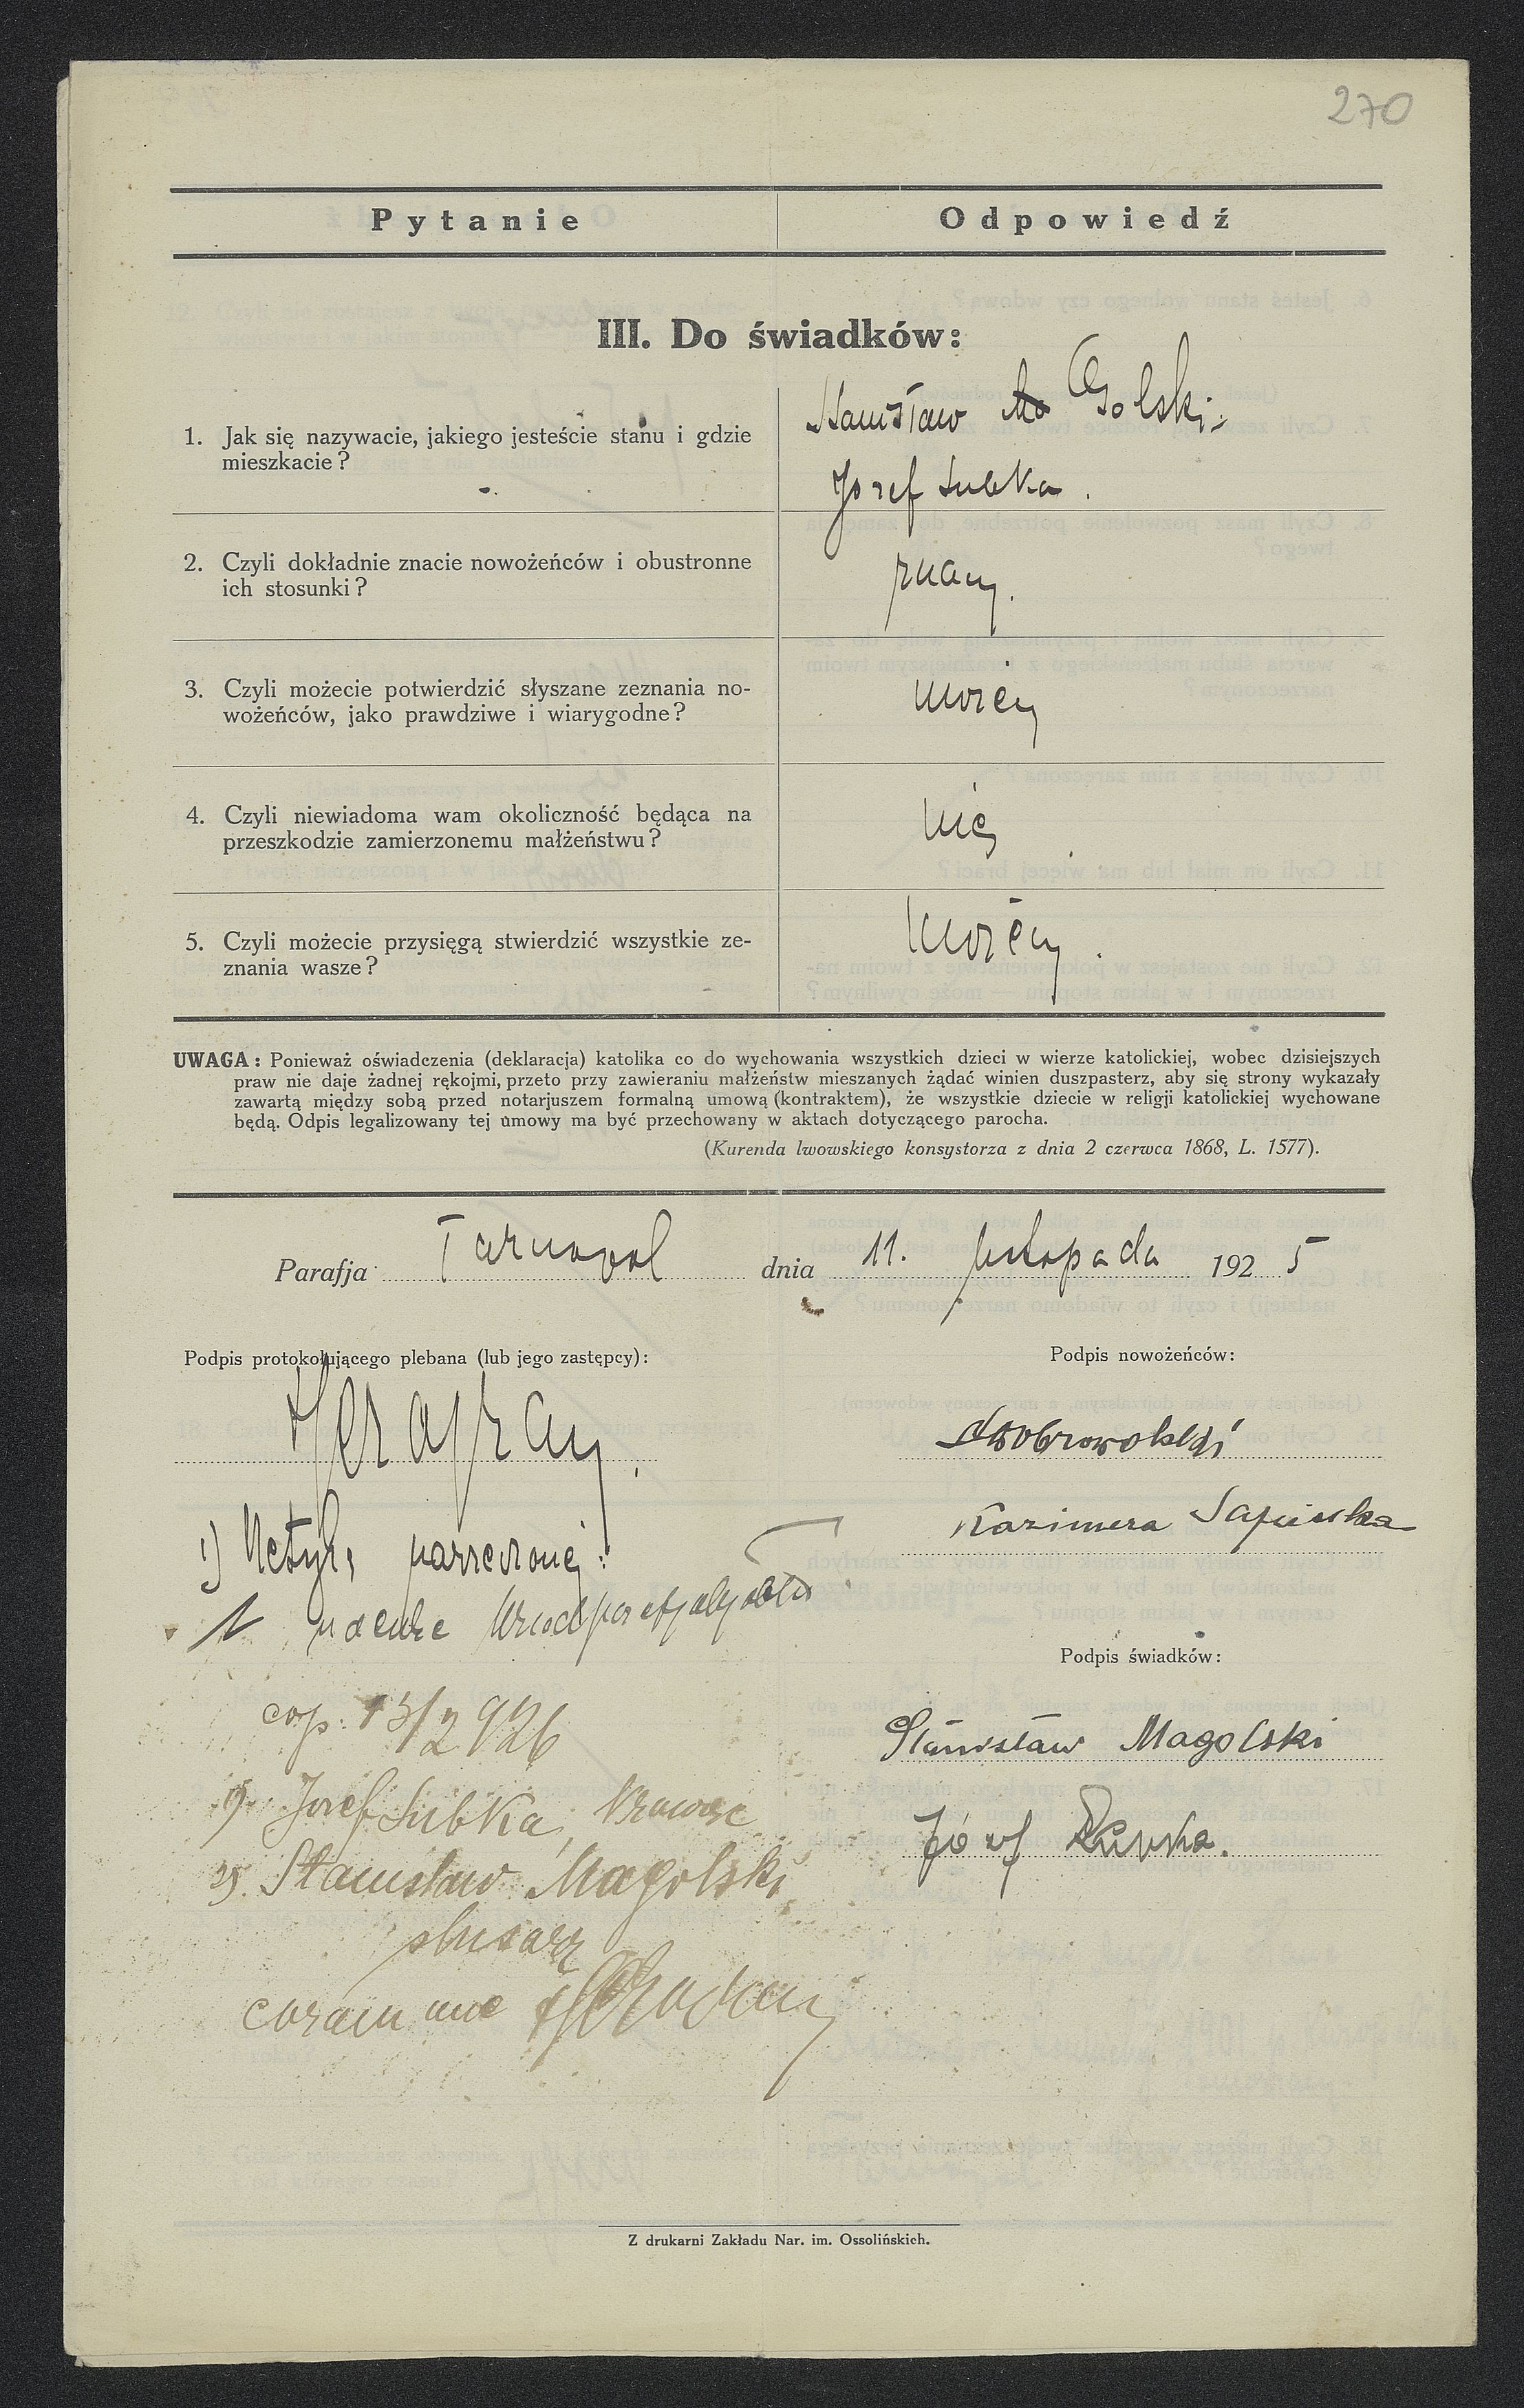 270
Pytanie
Odpowiedź
III. Do świadków:
1. Jak się nazywacie, jakiego jesteście stanu i gdzie
mieszkacie?
Stanisław Golski
Józef Lubka.
2. Czyli dokładnie znacie nowożeńców i obustronne
ich stosunki?
znamy.
3. Czyli możecie potwierdzić słyszane zeznania no-
wożeńców, jako prawdziwe i wiarygodne?
możemy
4. Czyli niewiadoma wam okoliczność będąca na
przeszkodzie zamierzonemu małżeństwu?
nie
5. Czyli możecie przysięgą stwierdzić wszystkie ze-
znania wasze?
możemy.
UWAGA: Ponieważ oświadczenia (deklaracja) katolika co do wychowania wszystkich dzieci w wierze katolickiej, wobec dzisiejszych
praw nie daje żadnej rękojmi, przeto przy zawieraniu małżeństw mieszanych żądać winien duszpasterz, aby się strony wykazały
zawartą między sobą przed notarjuszem formalną umową (kontraktem), że wszystkie dziecie w religji katolickiej wychowane
będą. Odpis legalizowany tej umowy ma być przechowany w aktach dotyczącego parocha.
(Kurenda lwowskiego konsystorza z dnia 2 czerwca 1868, L. 1577).
Parafja Tarnopol dnia 11. listopada 1925
Podpis protokołującego plebana (lub jego zastępcy):
Podpis nowożeńców:
Kazimera
1) Metryka narzeczonej
Podpis świadków:
cop. 13/2 926
Stanisław Magolski
1). Józef Lubka, krawiec
Józef Lubka.
2). Stanisław Magolski
ślusarz
coram me
Z drukarni Zakładu Nar. im. Ossolińskich.